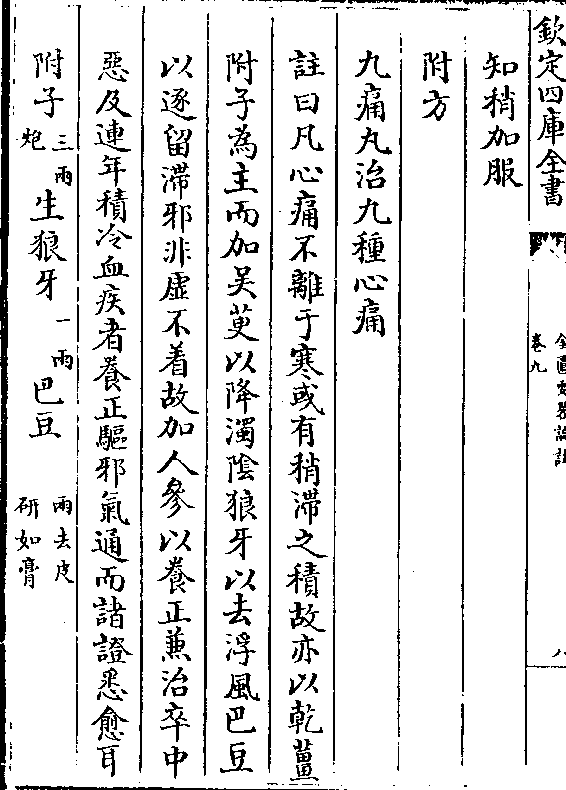 欽定四庫全書
卷九
知稍加服
附方
九痛丸治九種心痛
註曰凡心痛不離于寒或有稍滯之積故亦以乾薑
附子為主而加吴茰以降濁陰狼牙以去浮風巴豆
以逐留滯邪非虛不着故加人參以養正蕉治卒中
惡及連年積冷血疾者養正驅邪氣通而諸證悉愈耳
附子三兩炮 生狼牙一兩 巴豆一兩去皮研如膏